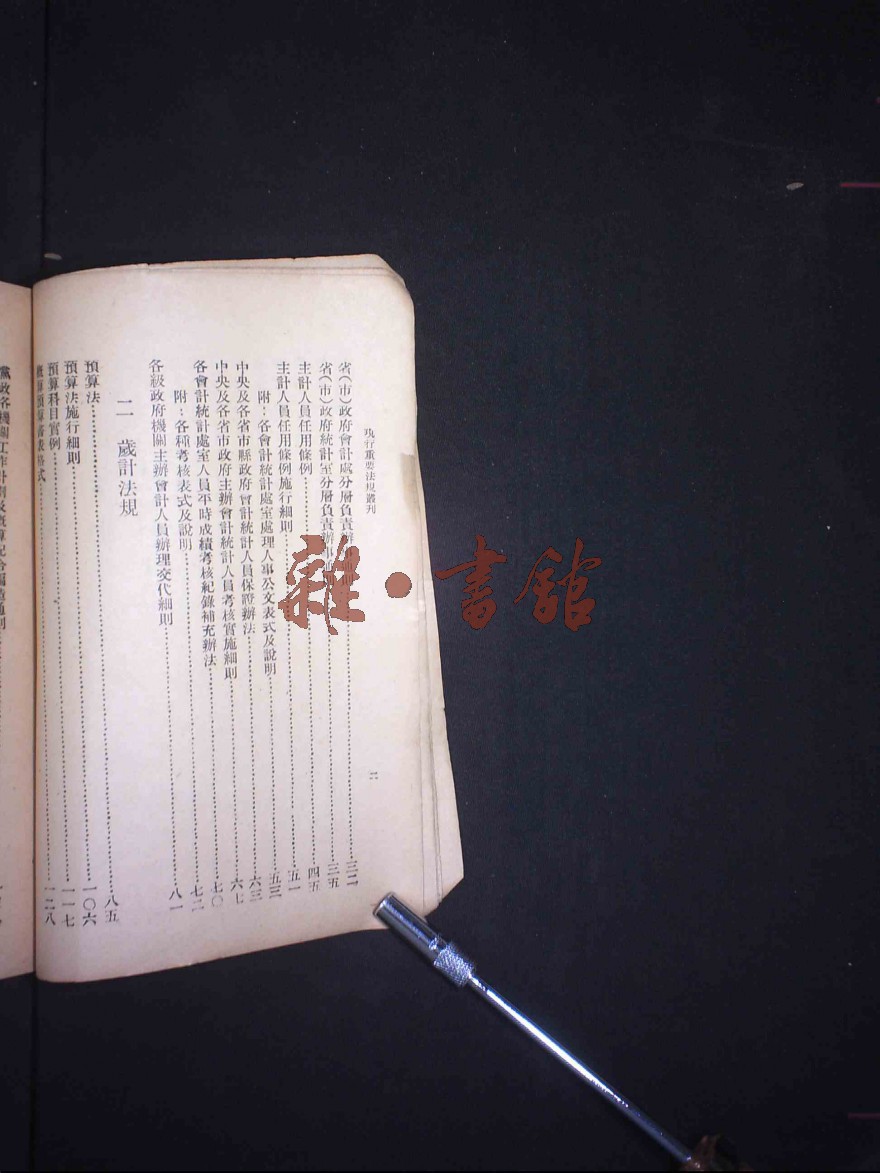 現行重要法規叢刊
二
省(市)政府會計處分層負責辦……三二
省(市)政府統計室分層負責辦事……三五
主計人員任用條例……四五
主計人員任用條例施行細則……五一
附:各會計統計處室處理人事公文表式及說明……五三
中央及各省市縣政府會計統計人員保證辦法……六三
中央及各省市政府主辦會計統計人員考核實施細則……六七
各會計統計處室人員平時成績考核紀錄補充辦法……七〇
附:各種考核表式及說明……七二
各級政府機關主辦會計人員辦理交代細則……八一
二 歲計法規
預算法……八五
預算法施行細則……一〇六
預算科目實例……一一七
概算預算書表格式……一二八
黨政各機關工作計劃及概算配合編造通則
雜·書館